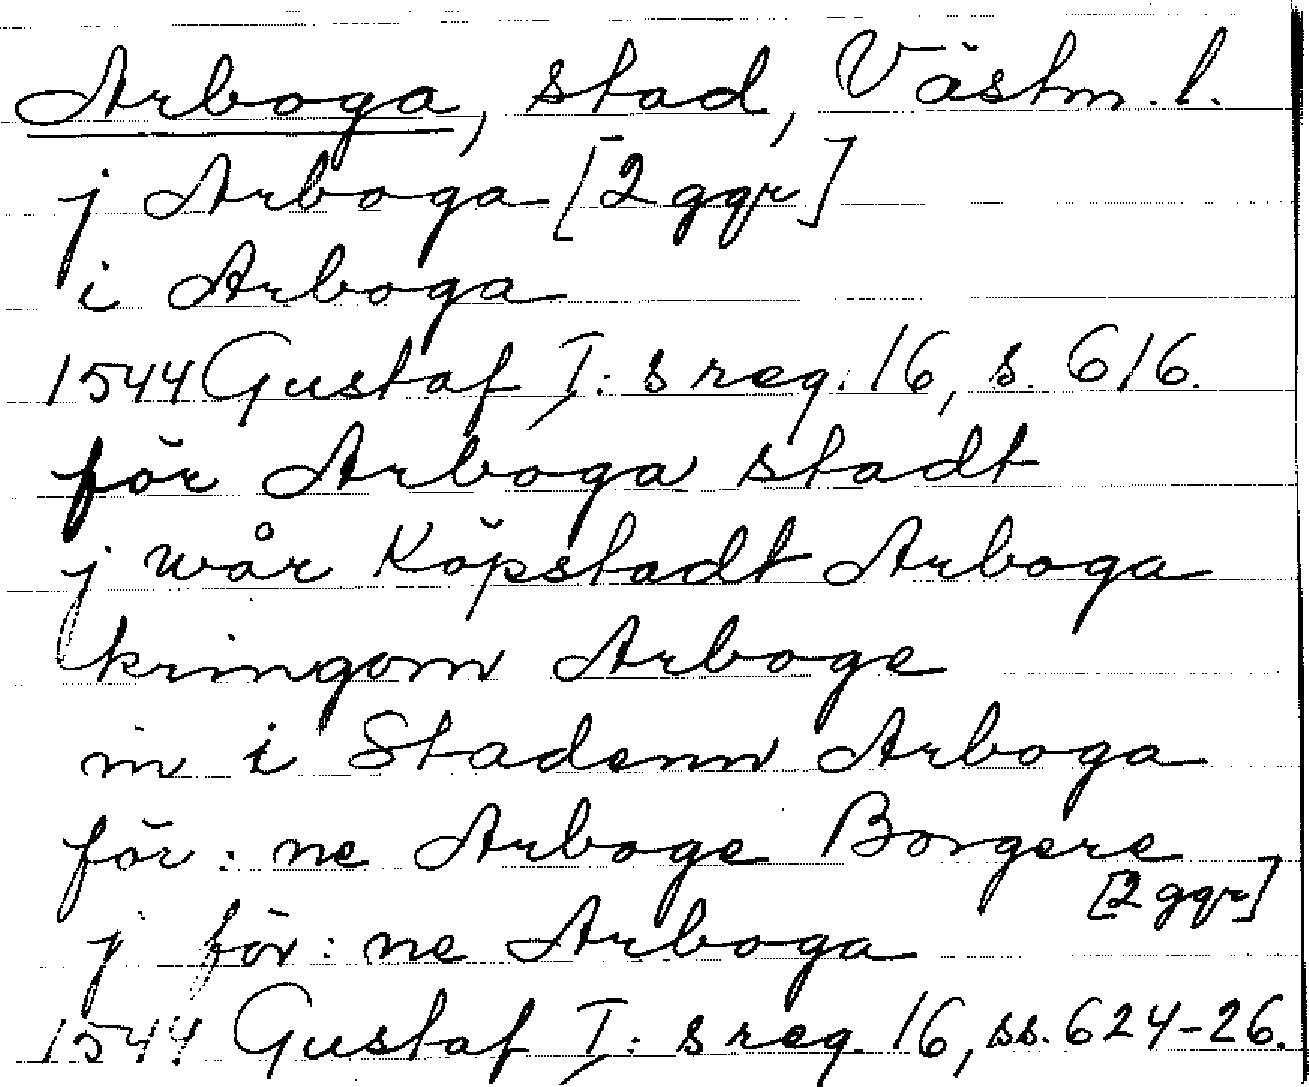 Arboga, stad, Västm. l.
j Arboga [2 ggr]
i Arboga
1544 Gustaf I: s reg. 16, s. 616.
för Arboga stadt
j wår Köpstadt Arboga
kringom Arboge
in i Stadenn Arboga
för: ne Arboge Borgere
[2 ggr]
j för: ne Arboga
1544 Gustaf I: s reg. 16, ss. 624-26.